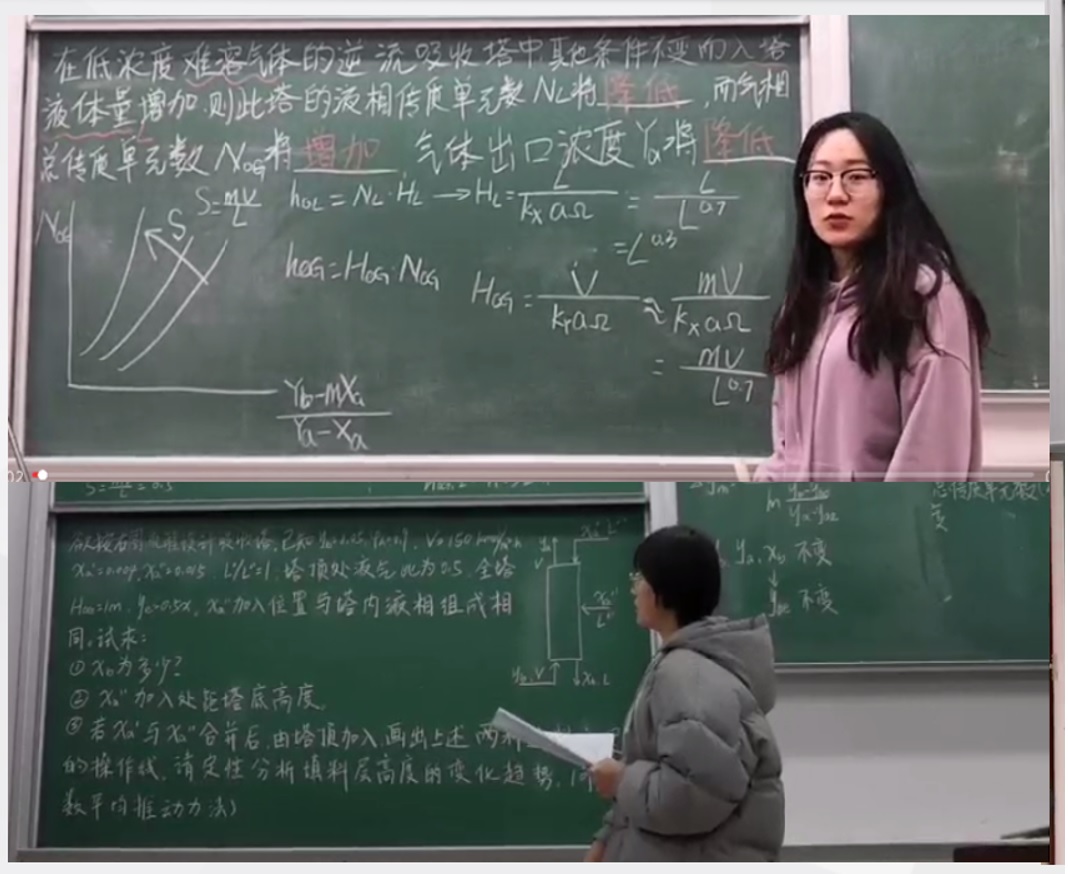 在低浓度难溶气体的逆流吸收塔中,其他条件不变而入塔
液体量增加,则此塔的液相传质单元数 NL将 降低 ,而气相
总传质单元数 NOG将 增加 气体出口浓度 Ya将 降低
S=mV/L
hOL = NL·HL → HL = L/(kXaΩ) = L/L^0.7
NOG
S
= L^0.3
hOG = HOG·NOG
HOG = V/(kYaΩ) ≈ mV/(kXaΩ)
= mV/L^0.7
(Yb-mXa)/(Ya-Xa)
02
总传质单元数
ya, xb 不变
不变
L'/L''=1, 塔顶处液气比为0.5, 全塔
HOG=1m, ye=0.5x, xa''加入位置与塔内液相组成相
同,试求:
① xb为多少?
② xa''加入处距塔底高度。
③ 若xa'与xa''合并后,由塔顶加入,画出上述两种
的操作线,请定性分析填料层高度的变化趋势。
数平均推动力法)
xa' L'
ya
V
xa''
L''
yb, V
xb, L